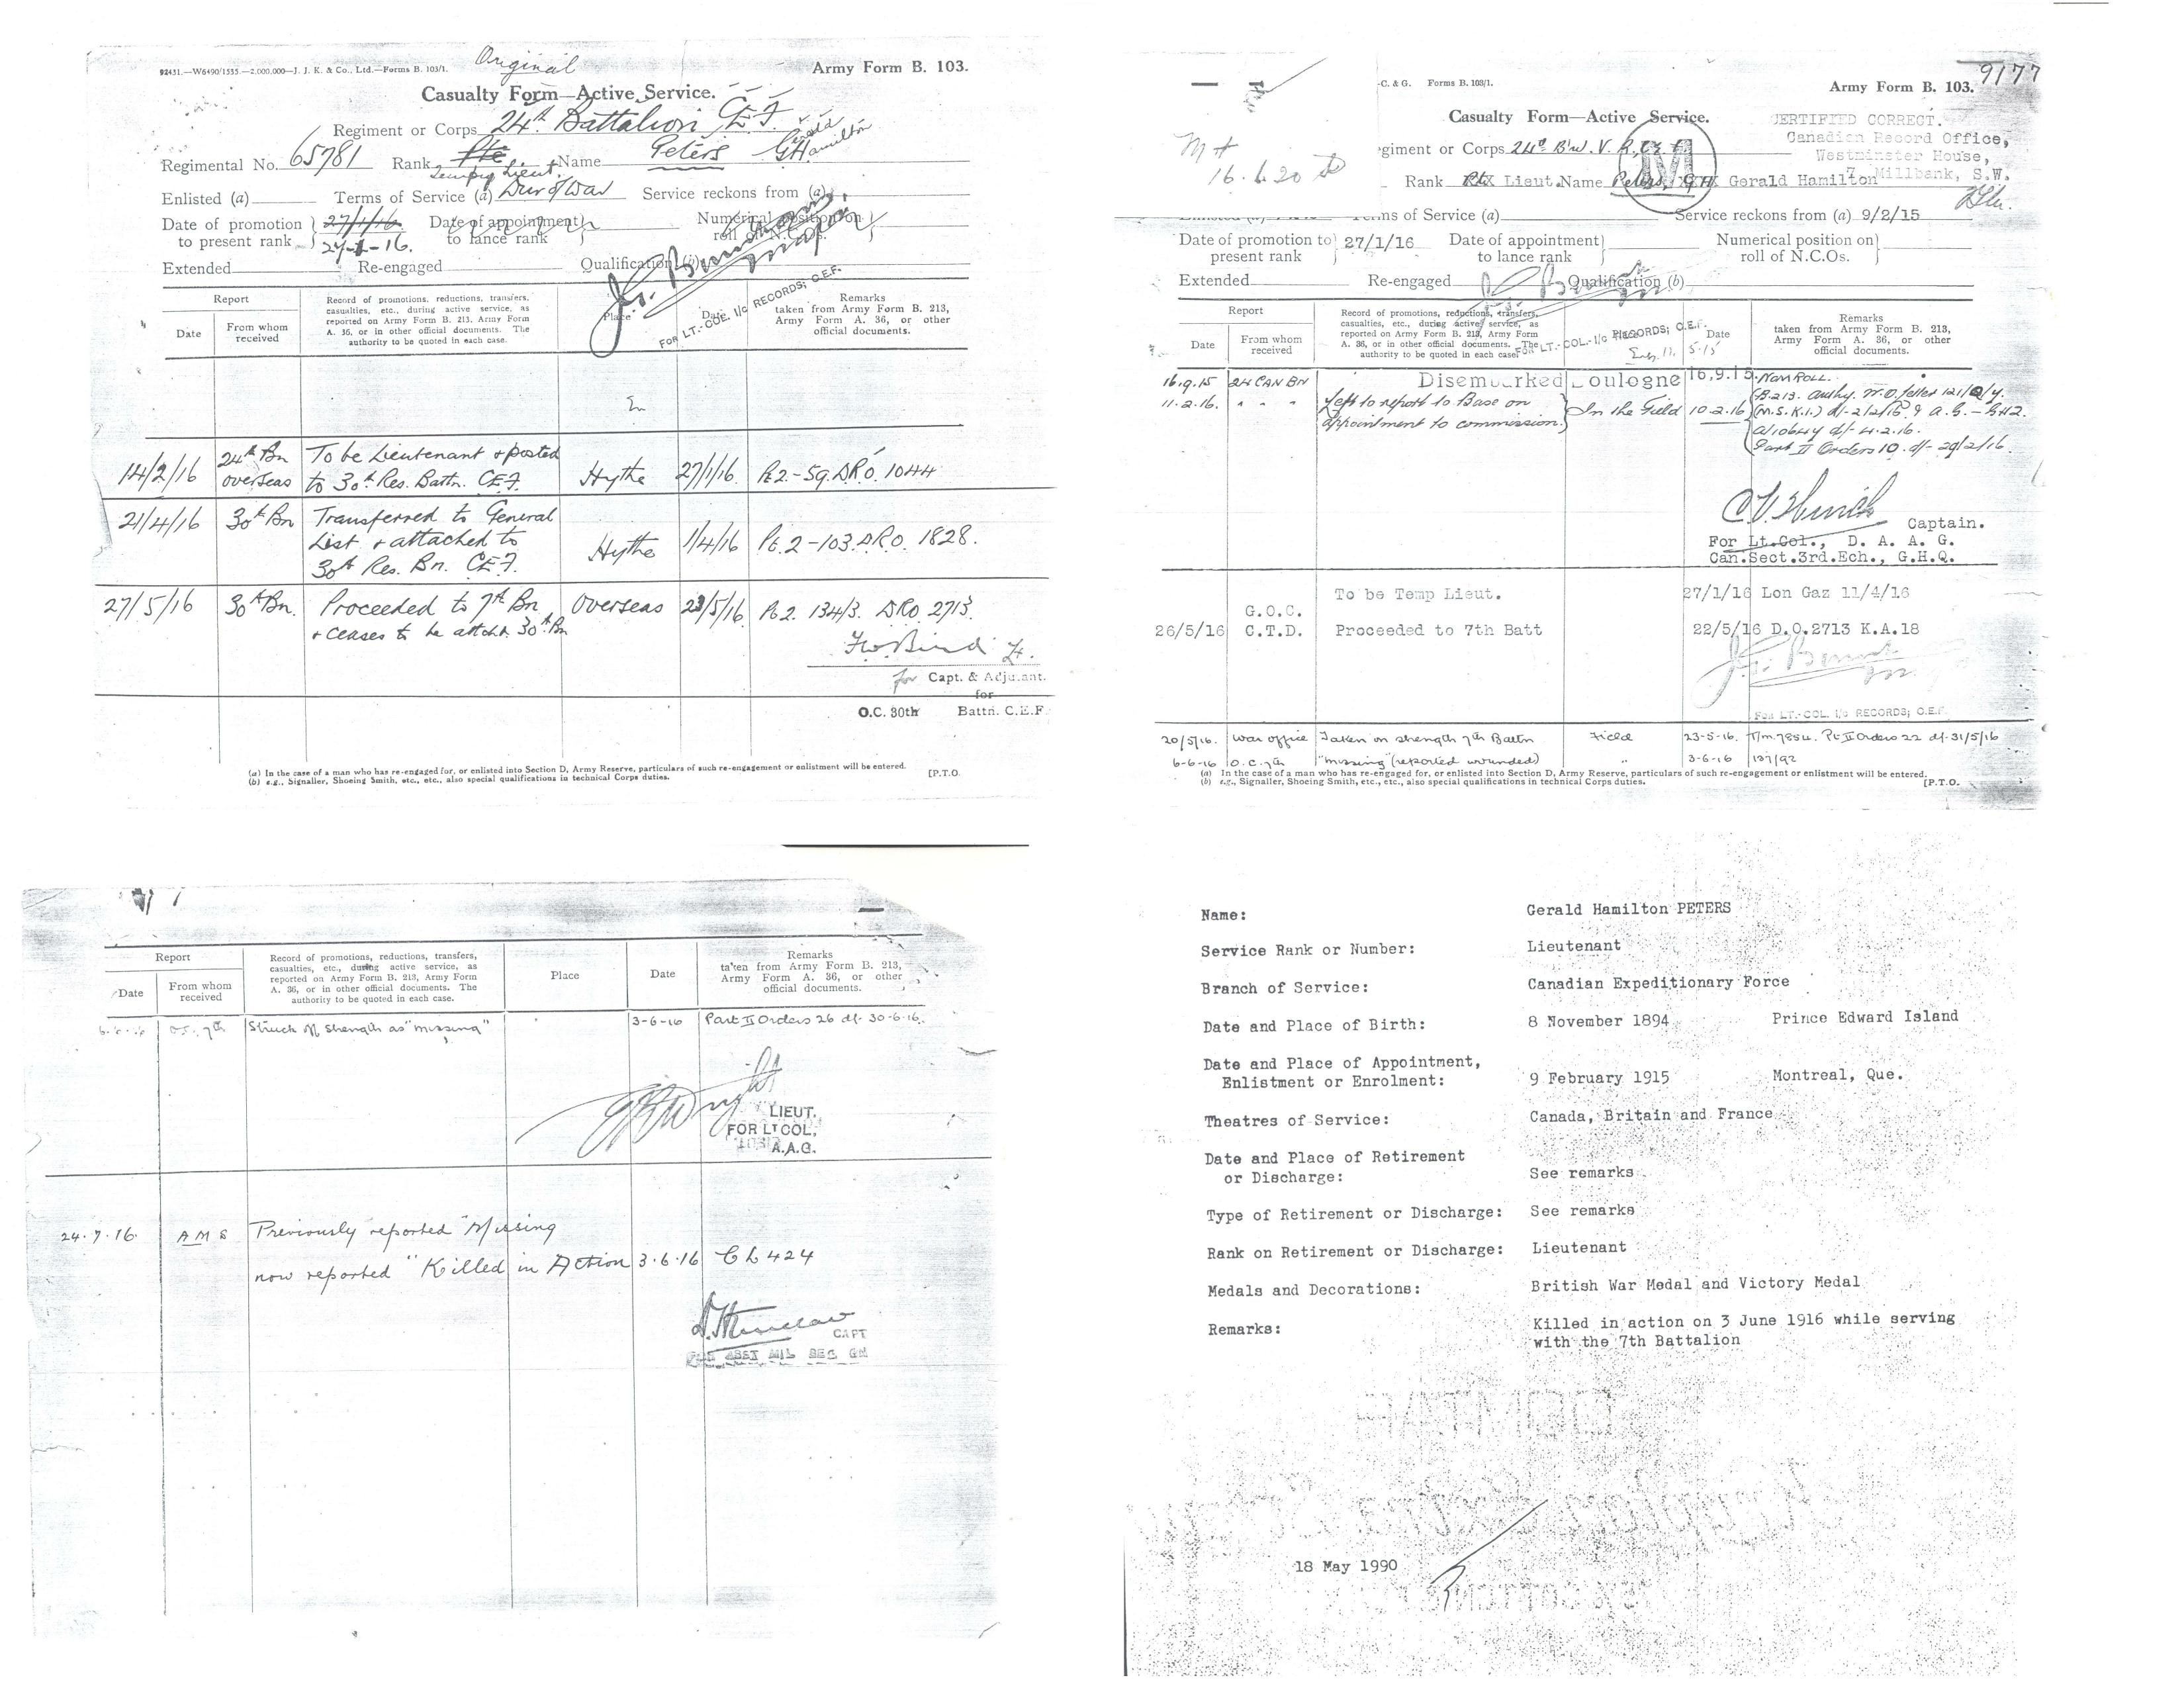 92431.—W6490/1535.—2,000,000—J. J. K. & Co., Ltd.—Forms B. 103/1.
Original
Army Form B. 103.
Casualty Form—Active Service.
Regiment or Corps 24th Battalion C.E.F.
Regimental No. 65781 Rank Pte Tempy Lieut. Name Peters G Gerald Hamilton
Enlisted (a) Terms of Service (a) Dur of War Service reckons from (a)
Date of promotion to present rank 27/1/16 27-1-16. Date of appointment to lance rank Numerical position on roll of N.C.Os.
Extended Re-engaged Qualification (b)
FOR LT.-COL. I/c RECORDS; C.E.F.
Report
Date
From whom received
Record of promotions, reductions, transfers, casualties, etc., during active service, as reported on Army Form B. 213, Army Form A. 36, or in other official documents. The authority to be quoted in each case.
Place
Date
Remarks taken from Army Form B. 213, Army Form A. 36, or other official documents.
14/2/16 24th Bn overseas To be Lieutenant & posted to 30th Res. Battn. C.E.F. Hythe 27/1/16 Pt 2.-59. D.R.O. 1044
21/4/16 30th Bn Transferred to General List & attached to 30th Res. Bn. C.E.F. Hythe 1/4/16 Pt. 2-103 D.R.O. 1828.
27/5/16 30th Bn. Proceeded to 7th Bn & ceases to be attchd. 30th Bn Overseas 23/5/16 Pt 2. 134/3. DRO 2713.
for Capt. & Adjutant.
for
O.C. 30th Battn. C.E.F
(a) In the case of a man who has re-engaged for, or enlisted into Section D, Army Reserve, particulars of such re-engagement or enlistment will be entered.
(b) e.g., Signaller, Shoeing Smith, etc., etc., also special qualifications in technical Corps duties.
[P.T.O.
9177
-C. & G. Forms B. 103/1.
Army Form B. 103.
M
16.6.20
Casualty Form—Active Service.
CERTIFIED CORRECT.
Canadian Record Office,
Westminster House,
7, Millbank, S.W.
giment or Corps 24th Bn. V. R. C.E.F.
M
Rank Lieut. Name Peters, Gerald Hamilton
Terms of Service (a) Service reckons from (a) 9/2/15
Date of promotion to present rank 27/1/16 Date of appointment to lance rank Numerical position on roll of N.C.Os.
Extended Re-engaged Qualification (b)
FOR LT.-COL.-I/c RECORDS; C.E.F.
Report
Date
From whom received
Record of promotions, reductions, transfers, casualties, etc., during active service, as reported on Army Form B. 213, Army Form A. 36, or in other official documents. The authority to be quoted in each case.
Date
Remarks taken from Army Form B. 213, Army Form A. 36, or other official documents.
16.9.15 24 CAN BN Disembarked Boulogne 16.9.15 Nom ROLL.
11.2.16. " " " Left to report to Base on appointment to commission. In the Field 10.2.16
Part II Orders 10. d/- 29/2/16.
Captain.
For Lt.Col., D. A. A. G.
Can.Sect.3rd.Ech., G.H.Q.
To be Temp Lieut. 27/1/16 Lon Gaz 11/4/16
26/5/16 G.O.C. C.T.D. Proceeded to 7th Batt 22/5/16 D.O.2713 K.A.18
FOR LT.-COL. I/c RECORDS; C.E.F.
20/5/16. War office Taken on strength 7th Battn Field 23-5-16. Pt II Orders 22 d/- 31/5/16
6-6-16 O.C. 7th "missing" (reported wounded) " 3-6-16 137/92
(a) In the case of a man who has re-engaged for, or enlisted into Section D, Army Reserve, particulars of such re-engagement or enlistment will be entered.
(b) e.g., Signaller, Shoeing Smith, etc., etc., also special qualifications in technical Corps duties.
[P.T.O.
Report
Date
From whom received
Record of promotions, reductions, transfers, casualties, etc., during active service, as reported on Army Form B. 213, Army Form A. 36, or in other official documents. The authority to be quoted in each case.
Place
Date
Remarks taken from Army Form B. 213, Army Form A. 36, or other official documents.
7th Struck off strength as "missing" 3-6-16 Part II Orders 26 d/- 30-6-16.
LIEUT.
FOR LT COL.
A.A.G.
24.7.16. AMS Previously reported "Missing
now reported "Killed in Action 3.6.16 CL 424
CAPT
FOR ASST MIL SEC
Name: Gerald Hamilton PETERS
Service Rank or Number: Lieutenant
Branch of Service: Canadian Expeditionary Force
Date and Place of Birth: 8 November 1894 Prince Edward Island
Date and Place of Appointment,
Enlistment or Enrolment: 9 February 1915 Montreal, Que.
Theatres of Service: Canada, Britain and France
Date and Place of Retirement
or Discharge: See remarks
Type of Retirement or Discharge: See remarks
Rank on Retirement or Discharge: Lieutenant
Medals and Decorations: British War Medal and Victory Medal
Remarks: Killed in action on 3 June 1916 while serving
with the 7th Battalion
18 May 1990